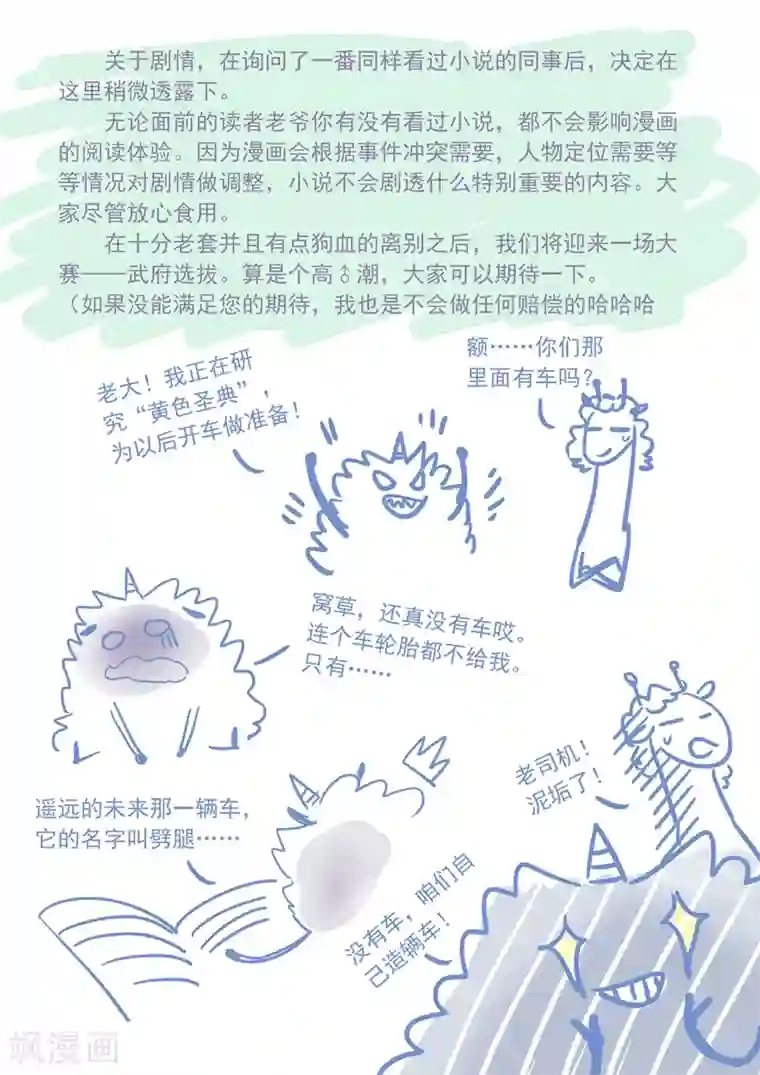 关于剧情，在询问了一番同样看过小说的同事后，决定在
这里稍微透露下。
无论面前的读者老爷你有没有看过小说，都不会影响漫画
的阅读体验。因为漫画会根据事件冲突需要，人物定位需要等
等情况对剧情做调整，小说不会剧透什么特别重要的内容。大
家尽管放心食用。
在十分老套并且有点狗血的离别之后，我们将迎来一场大
赛——武府选拔。算是个高♂潮，大家可以期待一下。
（如果没能满足您的期待，我也是不会做任何赔偿的哈哈哈
额……你们那
里面有车吗？
老大！我正在研
究“黄色圣典”，
为以后开车做准备！
窝草，还真没有车哎。
连个车轮胎都不给我。
只有……
老司机！
泥垢了！
遥远的未来那一辆车，
它的名字叫劈腿……
没有车，咱们自
己造辆车！
飒漫画